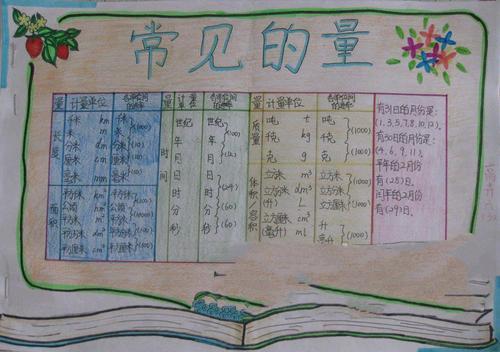 常见的量
量 计量单位 量 计量单位 量 计量单位
长度
千米 km
米 m
分米 dm
厘米 cm
毫米 mm
千米
米
分米
厘米
毫米
(1000)
(10)
面积
平方千米 km²
公顷
平方米 m²
平方分米 dm²
平方厘米
时间
世纪
年
月
日
时
分
秒
世纪
年
月
日
时
分
秒
(100)
(12)
(24)
(60)
(60)
质量
吨 t
千克 kg
克 g
吨
千克
克
(1000)
(1000)
体积 容积
立方米 m³
立方分米 dm³
(升) L
立方厘米 cm³
(毫升) ml
立方米
立方分米
立方厘米
(1000)
(1000)
升
毫升
(1000)
有31日的月份是:
(1,3,5,7,8,10,12)。
有30日的月份是:
(4,6,9,11)。
平年的2月份
有(28)日。
闰年的2月份
有(29)日。